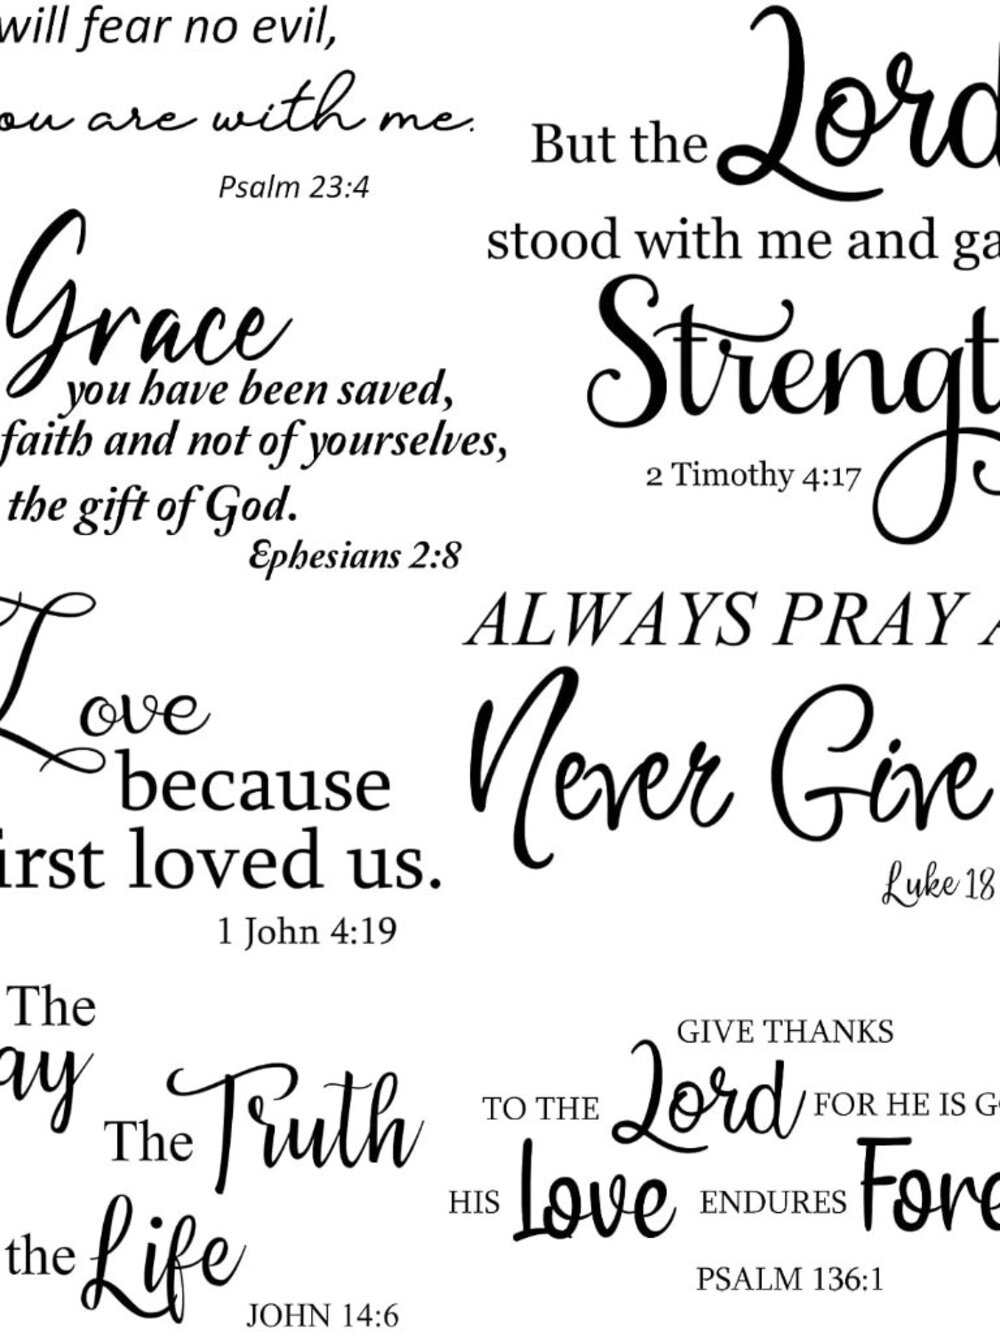 will fear no evil,
ou are with me.
Psalm 23:4
Grace
you have been saved,
faith and not of yourselves,
the gift of God.
Ephesians 2:8
Love
because
irst loved us.
1 John 4:19
The
ay
The Truth
the Life
JOHN 14:6
But the Lord
stood with me and ga
Strengt
2 Timothy 4:17
ALWAYS PRAY A
Never Give
Luke 18
GIVE THANKS
TO THE Lord FOR HE IS GO
HIS Love ENDURES Fore
PSALM 136:1